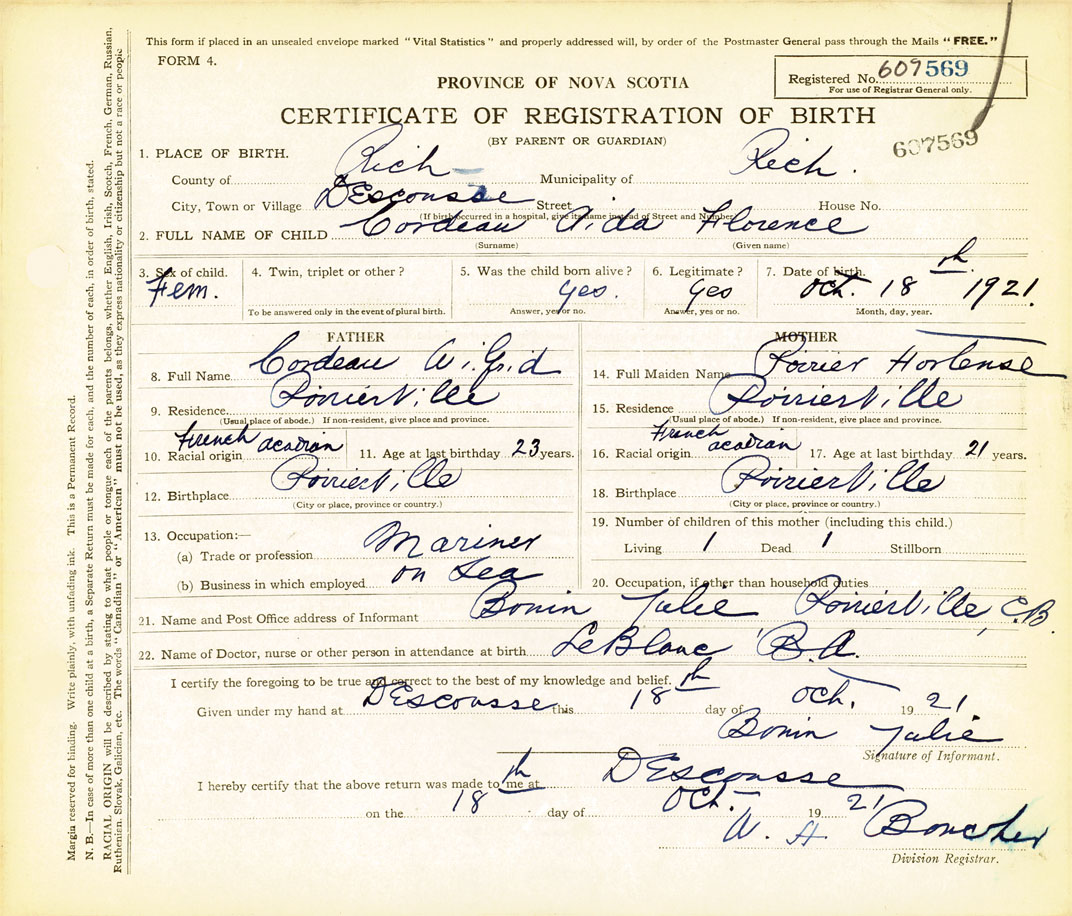 This form if placed in an unsealed envelope marked "Vital Statistics" and properly addressed will, by order of the Postmaster General pass through the Mails "FREE."
FORM 4.
Registered No. 607569
For use of Registrar General only.
PROVINCE OF NOVA SCOTIA
CERTIFICATE OF REGISTRATION OF BIRTH
(BY PARENT OR GUARDIAN)
607569
1. PLACE OF BIRTH.
County of Rich Municipality of Rich.
City, Town or Village DEscousse Street House No.
(If birth occurred in a hospital, give its name instead of Street and Number)
2. FULL NAME OF CHILD Cordeau Aida Florence
(Surname) (Given name)
3. Sex of child. 4. Twin, triplet or other? 5. Was the child born alive? 6. Legitimate? 7. Date of birth.
Fem. Yes. Yes Oct. 18th 1921
To be answered only in the event of plural birth. Answer, yes or no. Answer, yes or no. Month, day, year.
FATHER
8. Full Name Cordeau Wilfrid
9. Residence Poirierville
(Usual place of abode.) If non-resident, give place and province.
10. Racial origin French acadian 11. Age at last birthday 23 years.
12. Birthplace Poirierville
(City or place, province or country.)
13. Occupation:—
(a) Trade or profession Mariner
(b) Business in which employed on Sea
MOTHER
14. Full Maiden Name Poirier Hortense
15. Residence Poirierville
(Usual place of abode.) If non-resident, give place and province.
16. Racial origin French acadian 17. Age at last birthday 21 years.
18. Birthplace Poirierville
(City or place, province or country.)
19. Number of children of this mother (including this child.)
Living 1 Dead 1 Stillborn
20. Occupation, if other than household duties
21. Name and Post Office address of Informant Bonin Julie Poirierville, C.B.
22. Name of Doctor, nurse or other person in attendance at birth. LeBlanc B.A.
I certify the foregoing to be true and correct to the best of my knowledge and belief.
Given under my hand at DEscousse this 18th day of Oct. 1921
Bonin Julie
Signature of Informant.
I hereby certify that the above return was made to me at DEscousse
on the 18th day of Oct. 1921
W. A. Boucher
Division Registrar.
Margia reserved for binding. Write plainly, with unfading ink. This is a Permanent Record.
N. B.—In case of more than one child at a birth, a Separate Return must be made for each, and the number of each, in order of birth, stated.
RACIAL ORIGIN will be described by stating to what people or tongue each of the parents belongs, whether English, Irish, Scotch, French, German, Russian,
Ruthenian, Slovak, Galician, etc. The words "Canadian" or "American" must not be used, as they express nationality or citizenship but not a race or people